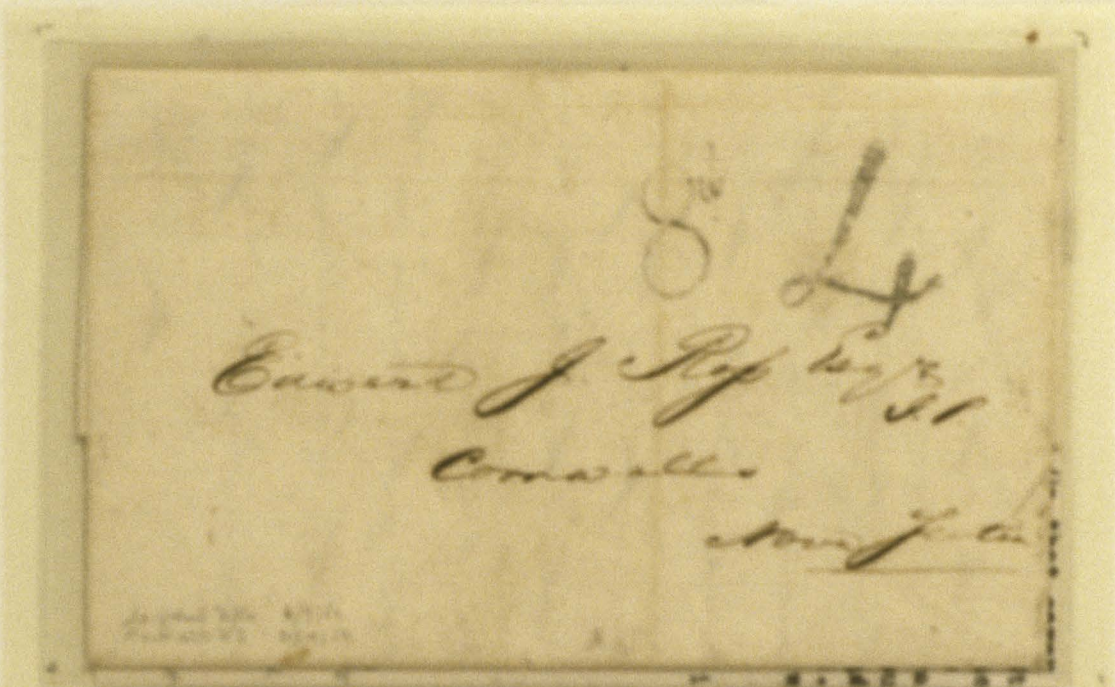 8
4
Edward J. Ross Esqr
Cornwallis
Nova Scotia